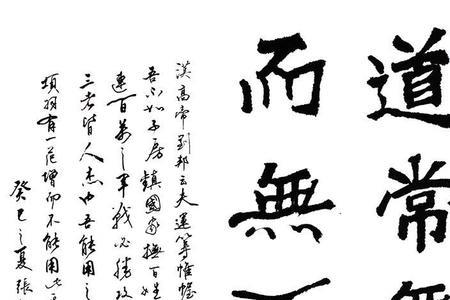 道常無
而無
漢高帝劉邦云夫運筹帷幄
吾不如子房鎮國家撫百姓
連百萬之軍戰必勝攻
三者皆人杰也吾能用之
項羽有一范增而不能用此
癸巳之夏張